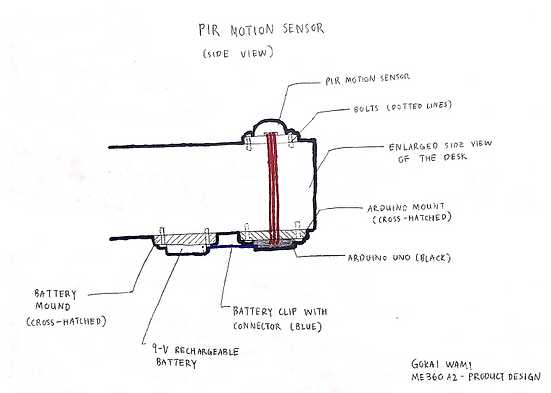 PIR MOTION SENSOR
(SIDE VIEW)
PIR MOTION SENSOR
BOLTS (DOTTED LINES)
ENLARGED SIDE VIEW
OF THE DESK
ARDUINO MOUNT
(CROSS-HATCHED)
ARDUINO UNO (BLACK)
BATTERY
MOUND
(CROSS-HATCHED)
BATTERY CLIP WITH
CONNECTOR (BLUE)
9-V RECHARGEABLE
BATTERY
GOKAI WAMI
ME360 A2 - PRODUCT DESIGN